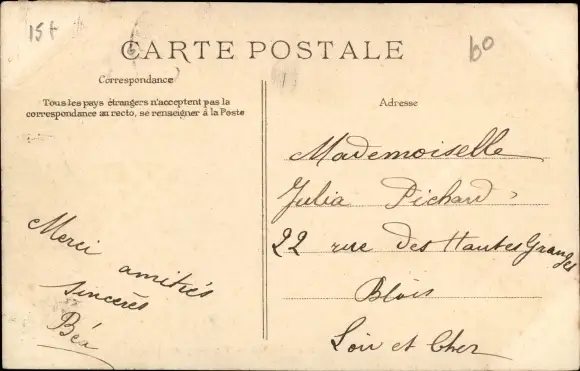 15t
60
CARTE POSTALE
Correspondance
Tous les pays étrangers n'acceptent pas la
correspondance au recto, se renseigner à la Poste
Merci
amitiés
sincères
Béa
Adresse
Mademoiselle
Julia Pichard
22 rue des Hautes Granges
Blois
Loir et Cher